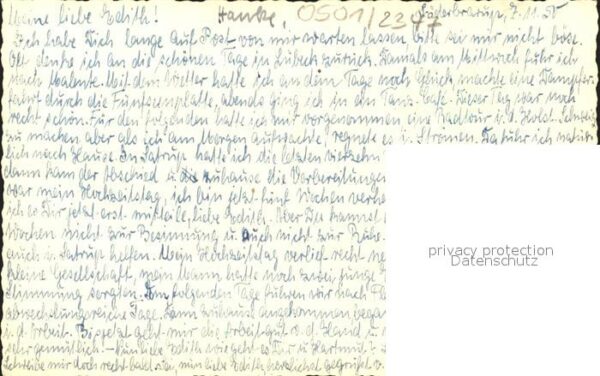 Meine liebe Edith! Hanke, 0501/22
Süderbrarup, 7.11.55
Ich habe Dich lange auf Post von mir warten lassen, bitte sei mir nicht böse.
Oft denke ich an die schönen Tage in Lübeck zurück. Damals am Mittwoch fuhr ich
nach Malente. Mit dem Wetter hatte ich an dem Tage noch Glück, machte eine Dampfer-
fahrt durch die Fünfseenplatte, abends ging ich in ein Tanz-Café. Dieser Tag war noch
recht schön. Für den folgenden hatte ich mir vorgenommen eine Radtour i. d. Holst. Schweiz
zu machen, aber als ich am Morgen aufwachte, regnete es in Strömen. Da fuhr ich natür-
lich nach Hause. In Satrup hatte ich die letzten vierzehn
dann kam der Abschied u. zuhause die Vorbereitungen
war mein Hochzeitstag, ich bin jetzt fünf Wochen verhei
ich es Dir jetzt erst mitteile, liebe Edith. Aber Du kannst
Wochen nicht zur Besinnung u. auch nicht zur Ruhe
auch i. Satrup helfen. Mein Hochzeitstag verlief recht ne
kleine Gesellschaft, mein Mann hatte noch zwei junge
Stimmung sorgten. Am folgenden Tage fuhren wir nach Fl
abwechslungsreiche Tage. Dann zuhause angekommen, began
i. d. Arbeit. Bis jetzt geht mir die Arbeit gut v. d. Hand u.
sehr gemütlich. – Nun liebe Edith wie geht es Dir u. Hartmut?
Schreibe mir doch recht bald mal, nun liebe Edith, herzlichst gegrüßt v.
privacy protection
Datenschutz